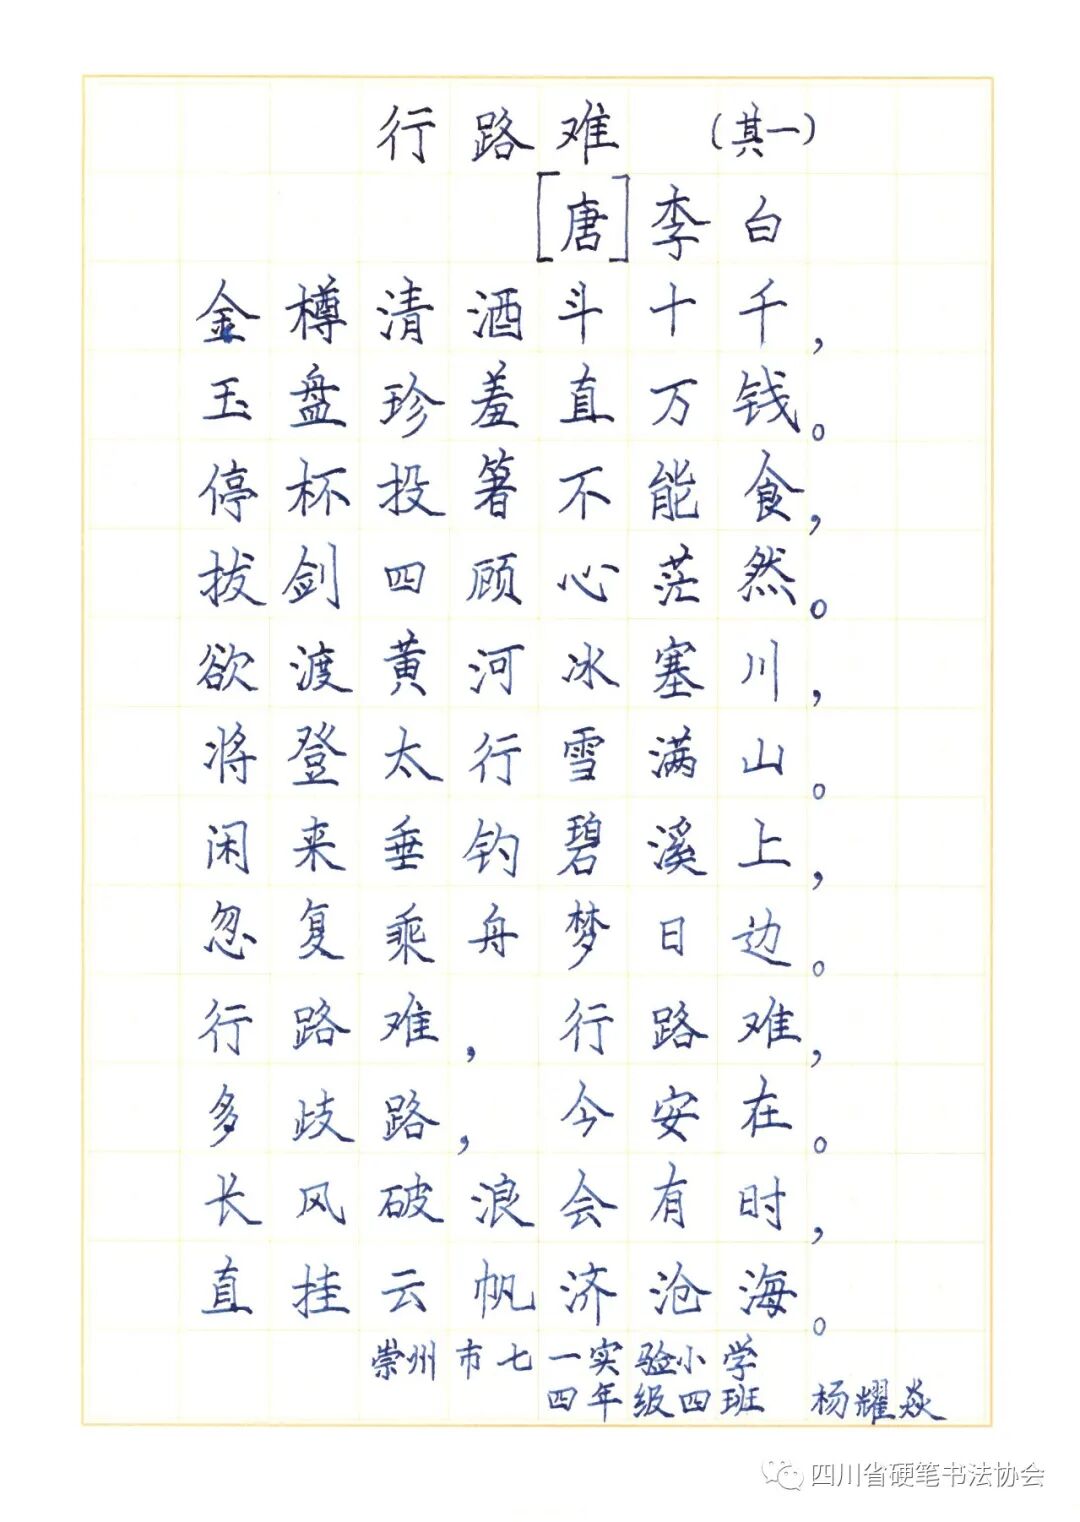 行路难 （其一）
[唐]李白
金樽清酒斗十千，
玉盘珍羞直万钱。
停杯投箸不能食，
拔剑四顾心茫然。
欲渡黄河冰塞川，
将登太行雪满山。
闲来垂钓碧溪上，
忽复乘舟梦日边。
行路难，行路难，
多歧路，今安在。
长风破浪会有时，
直挂云帆济沧海。
崇州市七一实验小学
四年级四班 杨耀焱
四川省硬笔书法协会